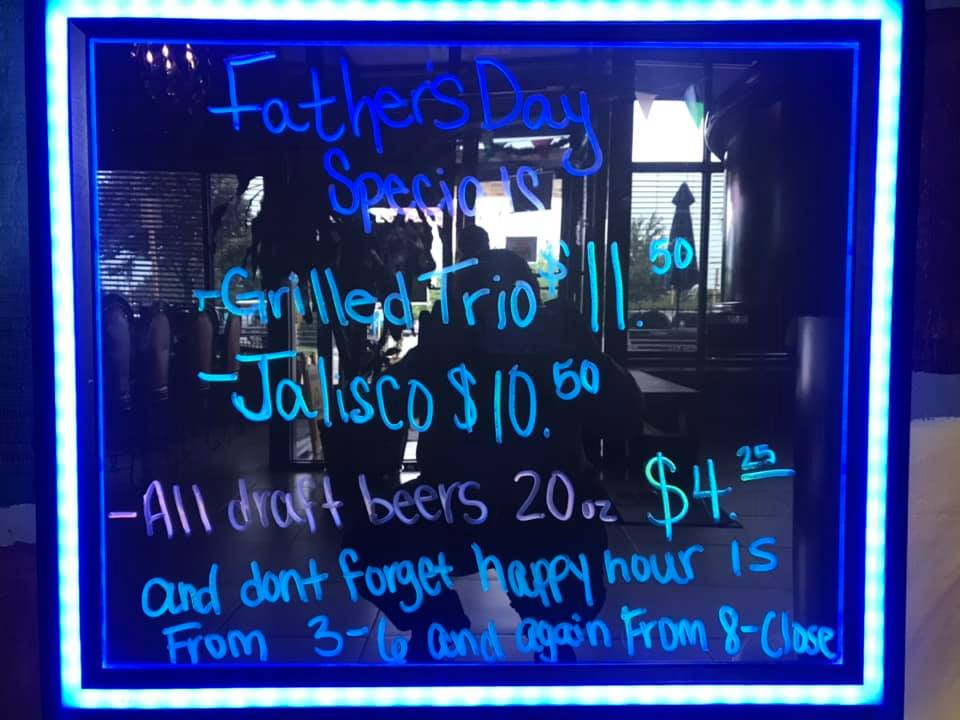 Father's Day
Specials
-Grilled Trio $11.50
-Jalisco $10.50
-All draft beers 20oz $4.25
and dont forget happy hour is
From 3-6 and again From 8-Close